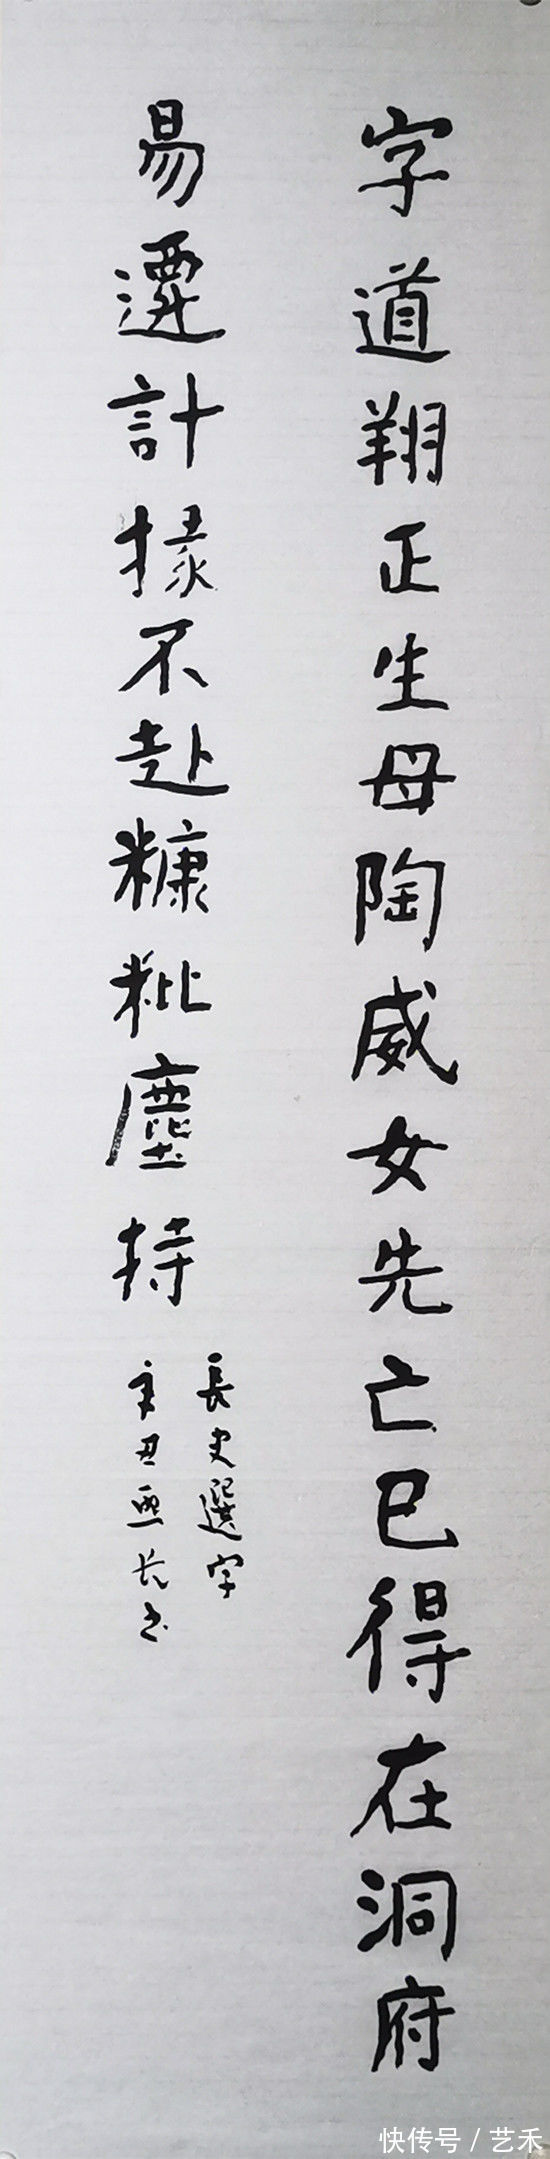 字道翔正生母陶威女先亡已得在洞府
易遷計掾不赴糠粃塵持
長史選字
辛丑 长书
快传号/艺禾